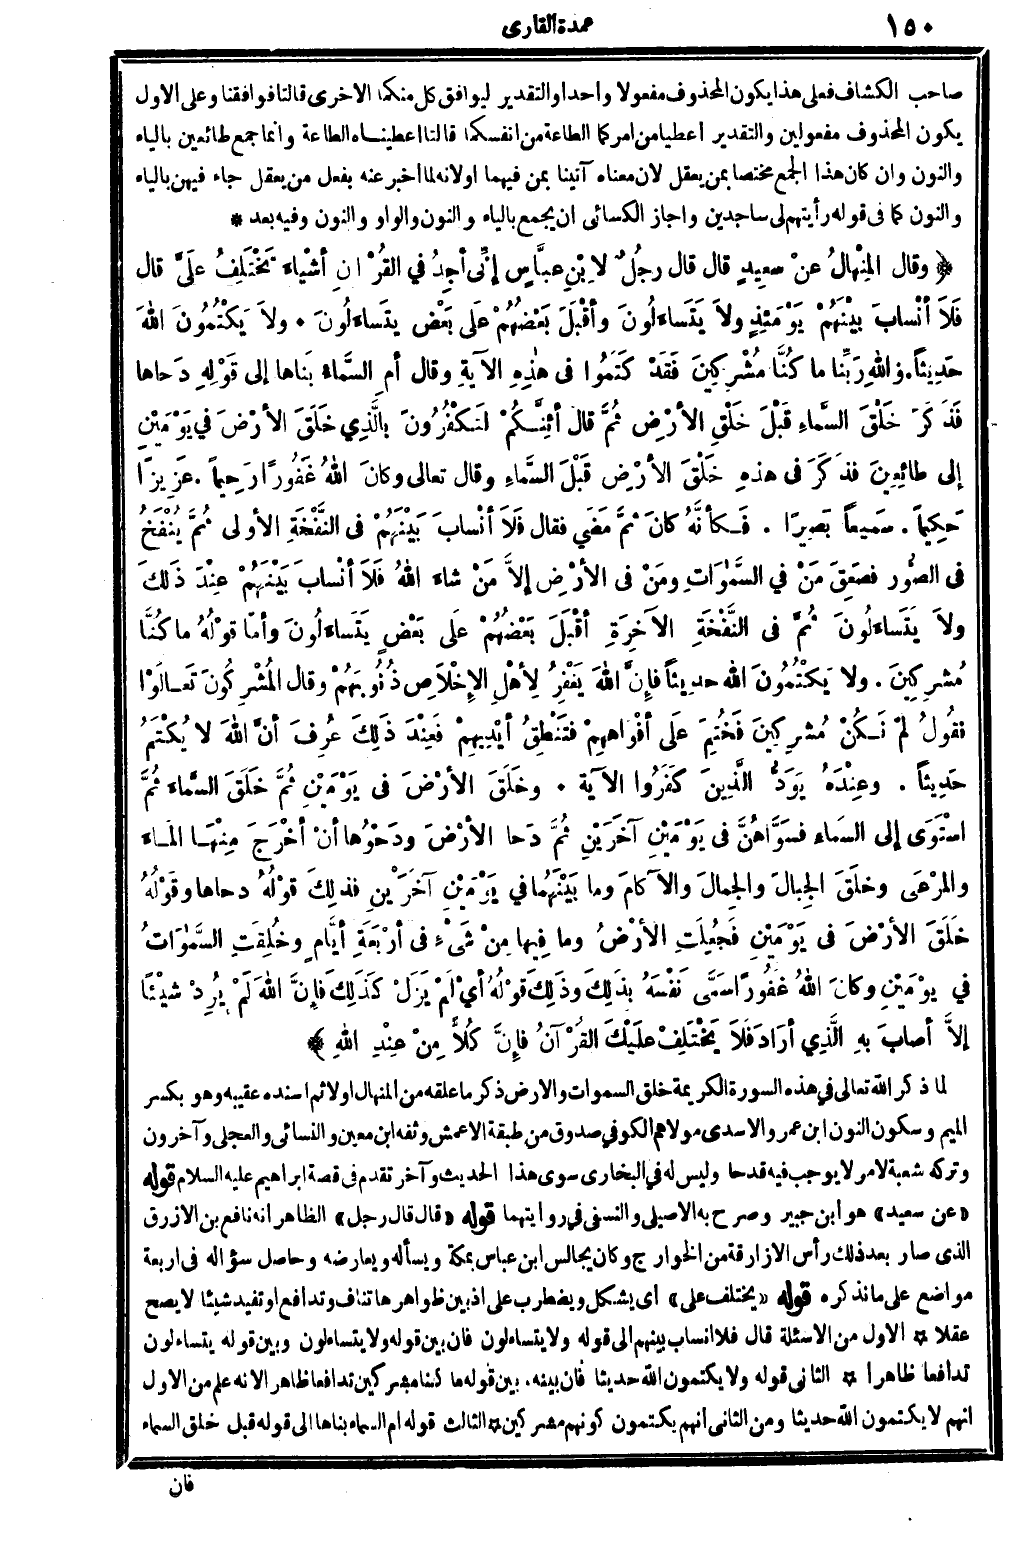 ١٥٠
عمدة القارى
صاحب الكشاف فعلى هذا يكون المحذوف مفعولا واحدا والتقدير ليوافق كل منكما الاخرى قالتا فوافقنا وعلى الاول
يكون المحذوف مفعولين والتقدير اعطيا من امركما الطاعة من انفسكما قالتا اعطيناه الطاعة وانما جمع طائعين بالياء
والنون وان كان هذا الجمع مختصا بمن يعقل لان معناه آتينا بمن فيهما اولانه لما اخبر عنه بفعل من يعقل جاء فيهن بالياء
والنون كما فى قوله رأيتهم لى ساجدين واجاز الكسائى ان يجمع بالياء والنون والواو والنون وفيه بعد *
﴿ وقال المِنْهالُ عنْ سعِيدٍ قال قال رجُلٌ لاِبْنِ عبَّاسٍ إنِّى أجِدُ في القُرْآنِ أشْياءَ تَخْتَلِفُ علَىَّ قال
فَلاَ أنْسابَ بيْنَهُمْ يوْمَئِذٍ ولاَ يَتَساءَلُونَ وأقْبَلَ بَعْضُهُمْ على بَعْضٍ يتَساءَلُونَ . ولاَ يَكْتُمُونَ اللهَ
حَدِيثاً. واللهِ رَبِّنا ما كُنَّا مُشْرِكِينَ فَقَدْ كَتَمُوا فى هٰذِهِ الآيَةِ وقال أمِ السَّماءُ بَناها إلى قَوْلِهِ دَحاها
فَذَكَرَ خَلْقَ السَّماءِ قَبْلَ خَلْقِ الأرْضِ ثُمَّ قال أئِنَّكُمْ لتَكْفُرُونَ بالَّذِي خَلَقَ الأرْضَ في يَوْمَيْنِ
إلى طائِعِينَ فذَكَرَ فى هذهِ خَلْقَ الأرْضِ قَبْلَ السَّماءِ وقال تعالى وكانَ اللهُ غَفُورًا رَحِيماً . عَزِيزًا
حَكِيماً . سَمِيعاً بَصِيرًا . فَكأنَّهُ كانَ ثمَّ مَضَي فقال فَلاَ أنْسابَ بَيْنَهُمْ فى النَّفْخَةِ الأولى ثُمَّ يُنْفَخُ
فى الصُّورِ فصَعِقَ مَنْ في السَّمٰوَاتِ ومَنْ فى الأرْضِ إلاَّ مَنْ شاءَ اللهُ فَلاَ أنْسابَ بَيْنَهُمْ عِنْدَ ذَلكَ
ولاَ يَتَساءَلُونَ ثُمَّ فى النَّفْخَةِ الآخِرَةِ أقْبَلَ بَعْضُهُمْ عَلَى بَعْضٍ يتَساءَلُونَ وأمّا قوْلُهُ ما كُنَّا
مُشْرِكِينَ . ولا يَكْتُمُونَ الله حديثاً فإنَّ اللهَ يَغْفِرُ لِأهْلِ الإخْلاَصِ ذُنُوبَهُمْ وقال المُشْرِكُونَ تَعالَوْا
نقُولُ لمْ نَكُنْ مُشركِينَ فَخُتِمَ عَلَى أفْواهِهِمْ فتَنْطِقُ أيْدِيهِمْ فَعِنْدَ ذَلِكَ عُرِفَ أنَّ اللهَ لا يُكْتَمُ
حَدِيثاً . وعِنْدَهُ يَوَدُّ الَّذِينَ كَفَرُوا الآيَةَ . وخَلَقَ الأرْضَ فى يَوْمَيْنِ ثُمَّ خَلَقَ السَّماءَ ثُمَّ
اسْتَوَى إلى السَماءِ فسَوَّاهُنَّ فى يَوْمَيْنِ آخَرَيْنِ ثُمَّ دَحا الأرْضَ ودَحْوُها أنْ أخْرَجَ مِنْهَا المَاءَ
والمَرْعَى وخلَقَ الجِبالَ والجِمالَ والآكامَ وما بَيْنَهُما في يَوْمَيْنِ آخَرَيْنِ فذلِكَ قوْلُهُ دحاها وقوْلُهُ
خَلَقَ الأرْضَ فى يَوْمَيْنِ فَجُعِلَتِ الأرْضُ وما فِيها مِنْ شَىْءٍ فى أرْبَعَةِ أيَّامٍ وخُلِقَتِ السَّمٰوَاتُ
في يوْمَيْنِ وكانَ اللهُ غفُورًا سَمَّى نَفْسَهُ بذلِكَ وذَلِكَ قوْلُهُ أيْ لَمْ يزَلْ كذَلِكَ فإنَّ اللهَ لَمْ يُرِدْ شيْئًا
إلاَّ أصابَ بهِ الَّذِي أرَادَ فَلاَ يَخْتَلِفْ علَيْكَ القُرْآنُ فإنَّ كُلاًّ مِنْ عِنْدِ اللهِ ﴾
لما ذكر الله تعالى في هذه السورة الكريمة خلق السموات والارض ذكر ما علقه من المنهال اولا ثم اسنده عقيبه وهو بكسر
الميم وسكون النون ابن عمرو الاسدى مولاهم الكوفي صدوق من طبقة الاعمش وثقه ابن معين والنسائى والعجلى وآخرون
وتركه شعبة لامر لا يوجب فيه قدحا وليس له في البخارى سوى هذا الحديث وآخر تقدم فى قصة ابراهيم عليه السلام قوله
«عن سعيد» هو ابن جبير وصرح به الاصيلى والنسفى في روايتهما قوله «قال قال رجل» الظاهر انه نافع بن الازرق
الذى صار بعد ذلك رأس الازارقة من الخوارج وكان يجالس ابن عباس بمكة ويسأله ويعارضه وحاصل سؤاله فى اربعة
مواضع على ما نذكره قوله «يختلف على» اى يشكل ويضطرب على اذ بين ظواهرها تناف وتدافع او تفيد شيئا لا يصح
عقلا * الاول من الاسئلة قال فلا انساب بينهم الى قوله ولا يتساءلون فان بين قوله ولا يتساءلون وبين قوله يتساءلون
تدافعا ظاهرا * الثانى قوله ولا يكتمون الله حديثا فان بينه . بين قوله ما كنا مشركين تدافعا ظاهرا لانه علم من الاول
انهم لا يكتمون الله حديثا ومن الثانى انهم يكتمون كونهم مشركين * الثالث قوله ام السماء بناها الى قوله قبل خلق السماء
فان